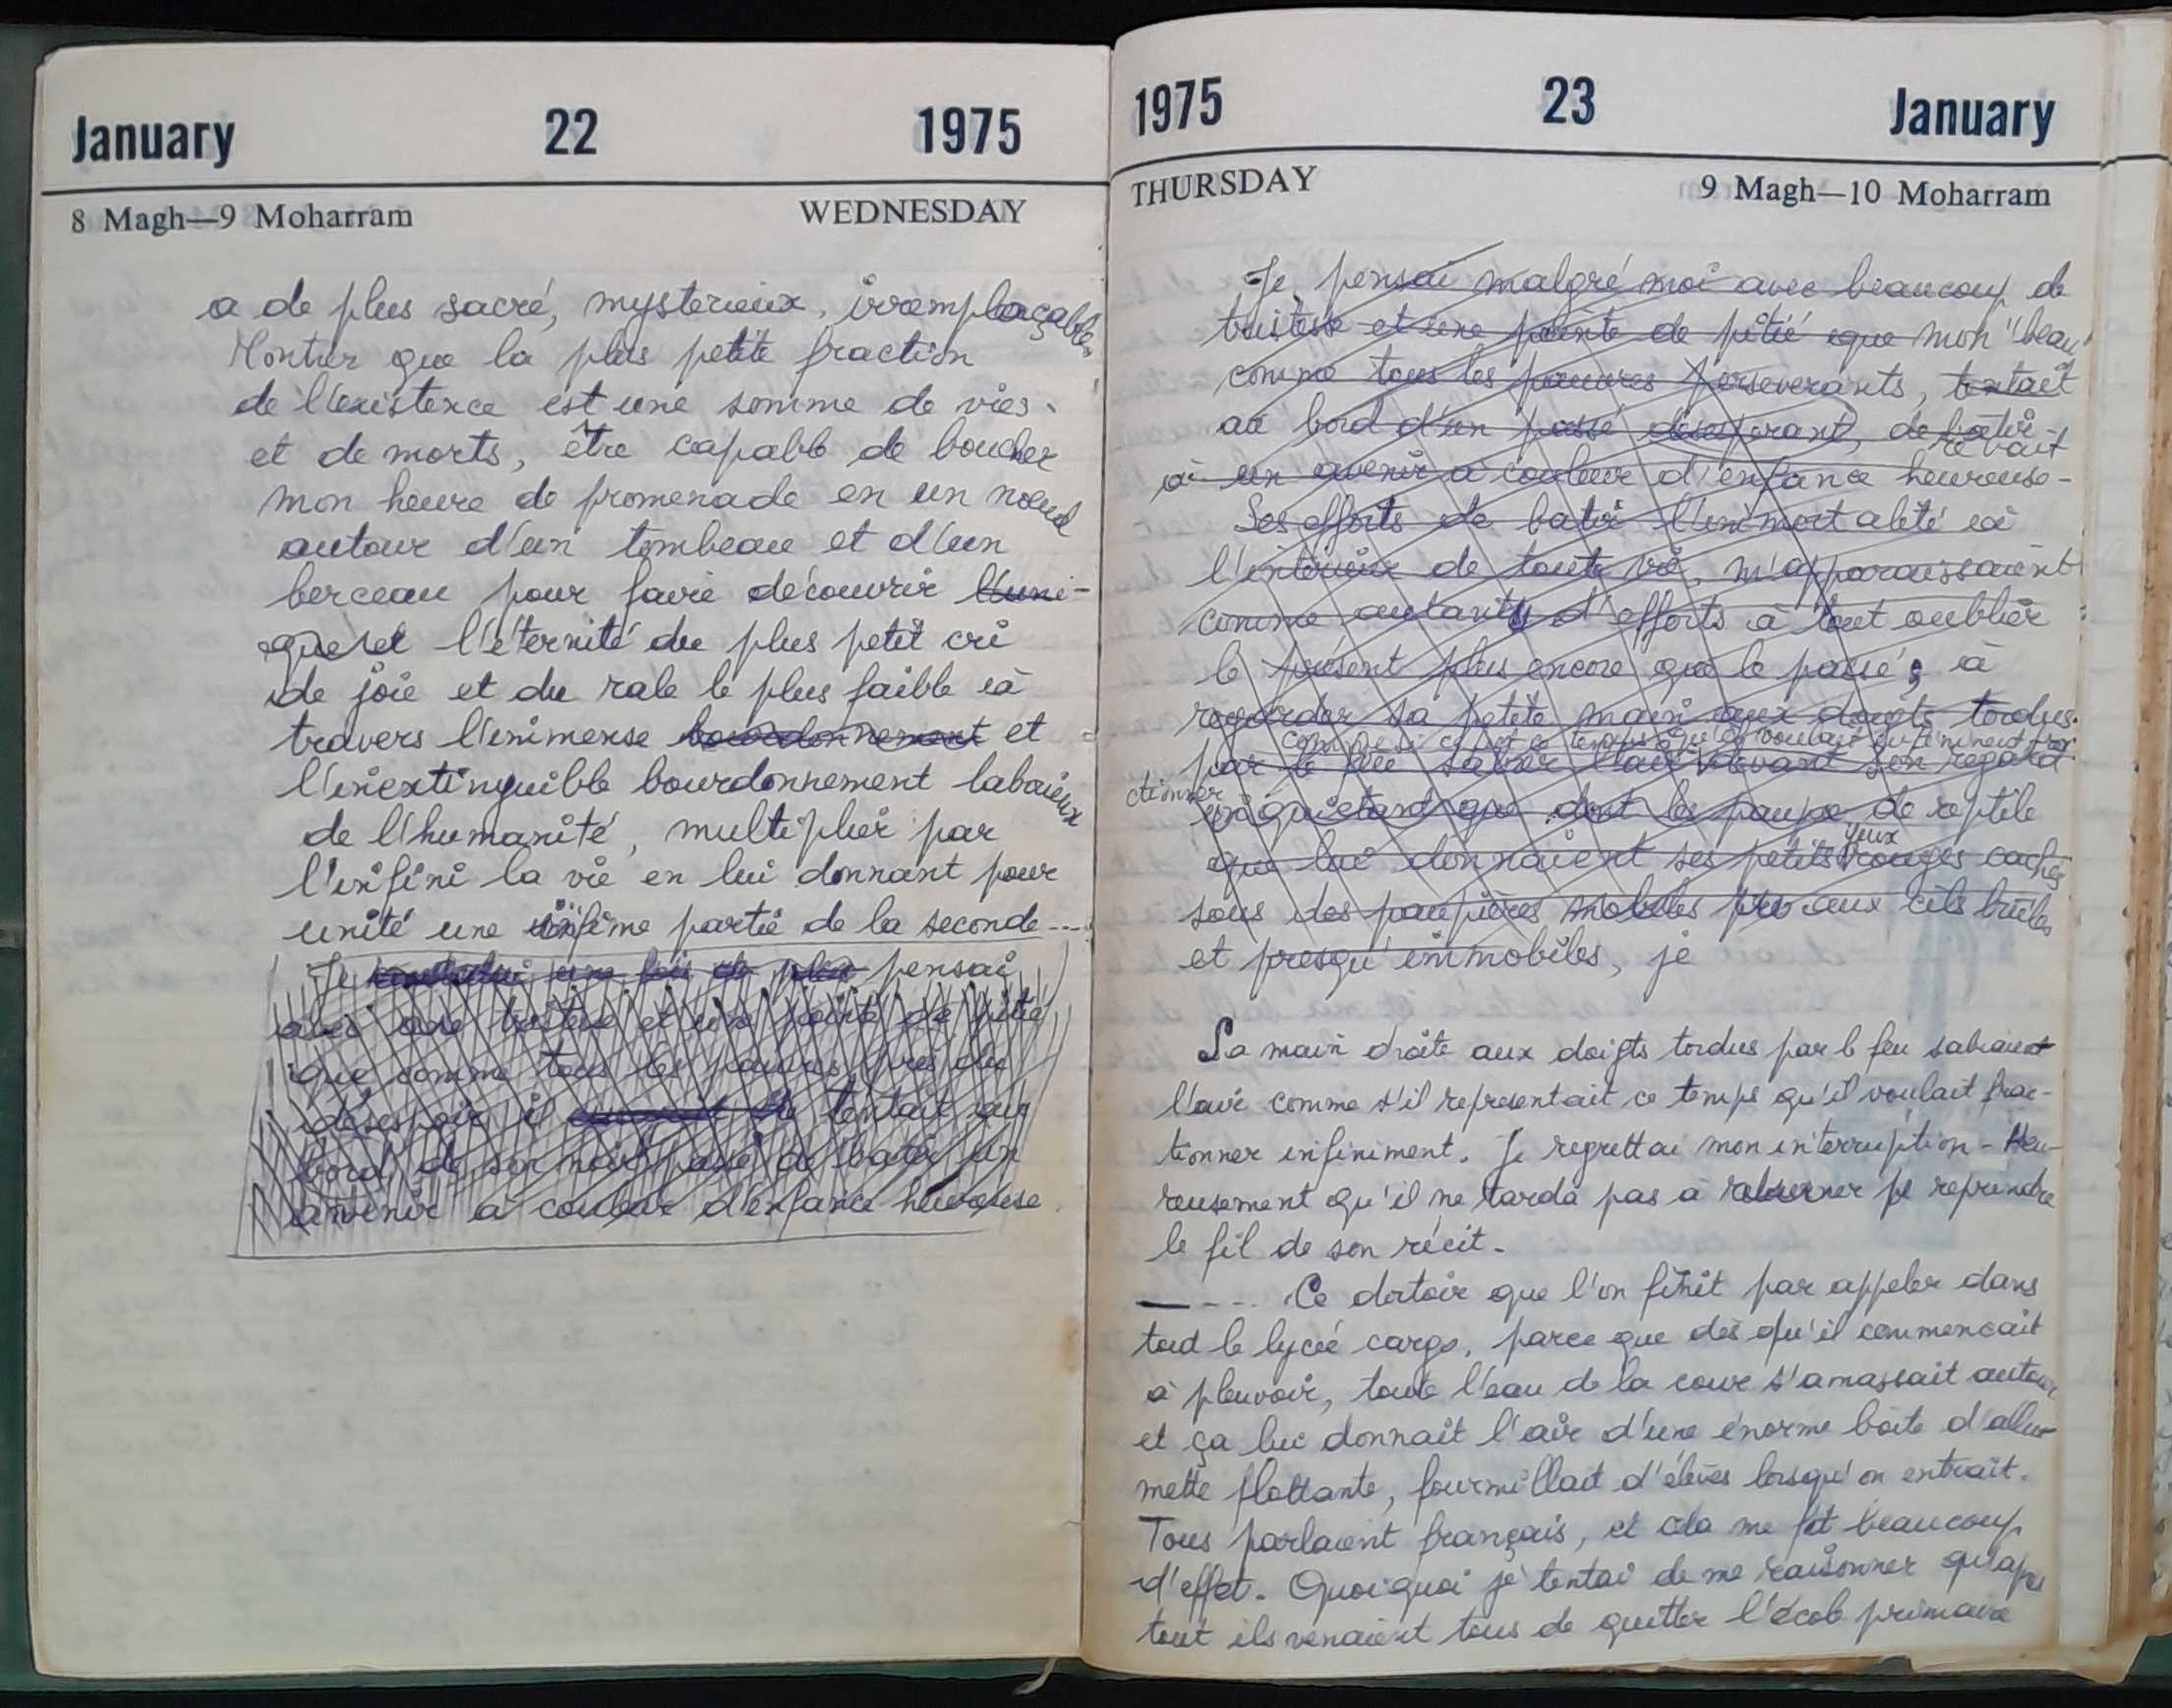 January 22 1975
8 Magh—9 Moharram WEDNESDAY
a de plus sacré, mysterieux, irremplaçable.
Montrer que la plus petite fraction
de l'existence est une somme de vies
et de morts, être capable de boucler
mon heure de promenade en un noeud
autour d'un tombeau et d'un
berceau pour faire découvrir l'uni-
que et l'éternité du plus petit cri
de joie et du rale le plus faible à
travers l'immense bourdonnement et
l'inextinguible bourdonnement labarieux
de l'humanité, multiplier par
l'infini la vie en lui donnant pour
unité une infime partie de la seconde...
Je pensai
avec une tristesse et une pointe de pitié
que comme tous les pauvres
désespoir il tentait au
bord de son passé de batir un
avenir a couleur d'enfance heureuse.
1975 23 January
THURSDAY 9 Magh—10 Moharram
Je pensai malgré moi avec beaucoup de
tristesse et une pointe de pitié que mon "beau"
comme tous les pauvres perseverants, tentait
au bord d'un passé désesperant, de batir
rêvait
à un avenir a couleur d'enfance heureuse-
Ses efforts de batir l'immortalité à
l'intérieur de toute vie, m'apparaissaient
comme autants d'efforts à tout oublier
le présent plus encore que le passé, à
regarder sa petite main aux doigts tordus
comme si c'est ce temps qu'il voulait infiniment frac
par le feu sabrer l'air devant son regard
ctionner
inquietant que dont les paupe de reptile
yeux
que lui donnaient ses petits rouges cachés
sous des paupières mobiles aux cils brulés
et presqu'immobiles, je
Sa main droite aux doigts tordus par le feu sabraient
l'air comme s'il representait ce temps qu'il voulait frac-
tionner infiniment. Je regrettai mon interruption - Heu-
reusement qu'il ne tarda pas à reprendre
le fil de son récit.
—--- Ce dortoir que l'on finit par appeler dans
tout le lycée cargo, parce que dès qu'il commencait
à pleuvoir, toute l'eau de la cour s'amassait autour
et ça lui donnait l'air d'une énorme boite d'allu-
mette flottante, fourmillait d'élèves lorsqu'on entrait.
Tous parlaient français, et cela me fit beaucoup
d'effet. Quoiquoi je tentai de me raisonner qu'après
tout ils venaient tous de quitter l'école primaire